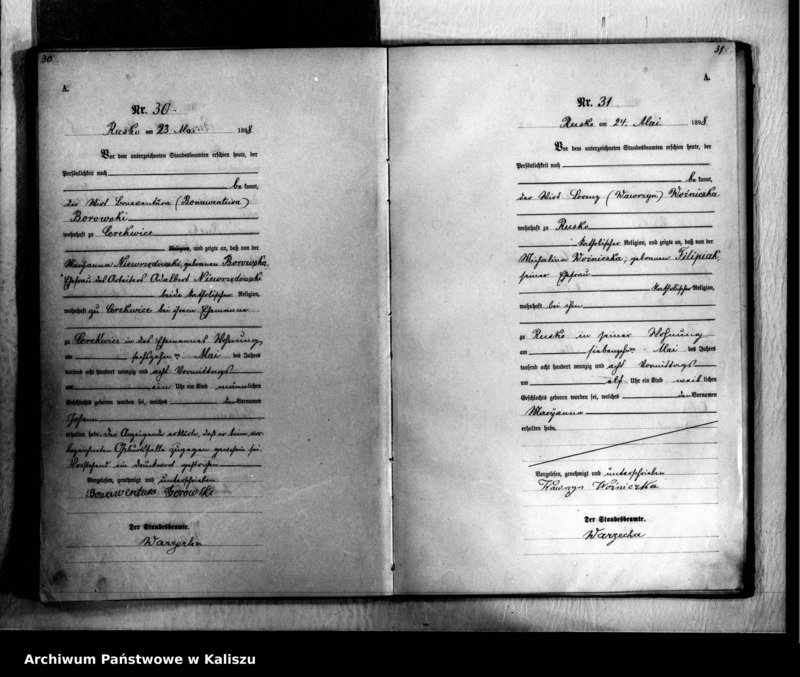 30.
A.
Nr. 30.
Rusko am 23. Mai 1898
Vor dem unterzeichneten Standesbeamten erschien heute, der
Persönlichkeit nach
bekannt,
der Wirt Bonaventura (Bonawentura)
Borowski
wohnhaft zu Cerekwice
Religion, und zeigte an, daß von der
Maryanna Niewrzędowski, geborenen Borowska,
Ehefrau des Arbeiters Adalbert Niewrzędowski
beide katholischer Religion,
wohnhaft zu Cerekwice bei ihrem Ehemanne
zu Cerekwice in des Ehemannes Wohnung,
am sechszehnten Mai des Jahres
tausend acht hundert neunzig und acht Vormittags
um ein Uhr ein Kind männlichen
Geschlechts geboren worden sei, welches den Vornamen
Johann
erhalten habe. Der Anzeigende erklärte, daß er beim vor-
bezeichneten Geburtsfalle zugegen gewesen sei.
Vorstehend ein Druckwort gestrichen
Vorgelesen, genehmigt und unterschrieben
Bonawentura Borowski
Der Standesbeamte.
Warzecha
31
A.
Nr. 31
Rusko am 24. Mai 1898
Vor dem unterzeichneten Standesbeamten erschien heute, der
Persönlichkeit nach
bekannt,
der Wirt Lorenz (Wawrzyn) Woźniczka
wohnhaft zu Rusko
katholischer Religion, und zeigte an, daß von der
Michalina Woźniczka, geborenen Filipiak,
seiner Ehefrau
katholischer Religion,
wohnhaft bei ihm
zu Rusko in seiner Wohnung
am siebenzehnten Mai des Jahres
tausend acht hundert neunzig und acht Vormittags
um elf Uhr ein Kind weiblichen
Geschlechts geboren worden sei, welches den Vornamen
Maryanna
erhalten habe.
Vorgelesen, genehmigt und unterschrieben
Wawrzyn Woźniczka
Der Standesbeamte.
Warzecha
Archiwum Państwowe w Kaliszu